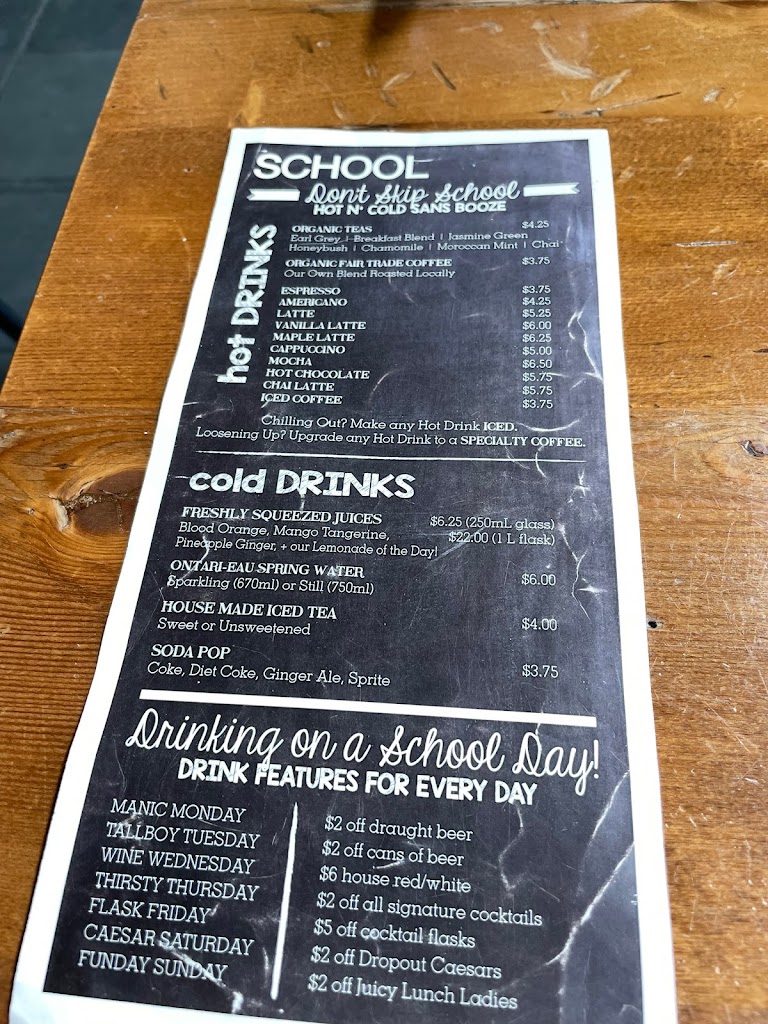 SCHOOL
Don't Skip School
HOT N' COLD SANS BOOZE
hot DRINKS
ORGANIC TEAS $4.25
Earl Grey | Breakfast Blend | Jasmine Green
Honeybush | Chamomile | Moroccan Mint | Chai
ORGANIC FAIR TRADE COFFEE $3.75
Our Own Blend Roasted Locally
ESPRESSO $3.75
AMERICANO $4.25
LATTE $5.25
VANILLA LATTE $6.00
MAPLE LATTE $6.25
CAPPUCCINO $5.00
MOCHA $6.50
HOT CHOCOLATE $5.75
CHAI LATTE $5.75
ICED COFFEE $3.75
Chilling Out? Make any Hot Drink ICED.
Loosening Up? Upgrade any Hot Drink to a SPECIALTY COFFEE.
cold DRINKS
FRESHLY SQUEEZED JUICES $6.25 (250mL glass)
Blood Orange, Mango Tangerine, $22.00 (1 L flask)
Pineapple Ginger, + our Lemonade of the Day!
ONTARI-EAU SPRING WATER $6.00
Sparkling (670ml) or Still (750ml)
HOUSE MADE ICED TEA $4.00
Sweet or Unsweetened
SODA POP $3.75
Coke, Diet Coke, Ginger Ale, Sprite
Drinking on a School Day!
DRINK FEATURES FOR EVERY DAY
MANIC MONDAY $2 off draught beer
TALLBOY TUESDAY $2 off cans of beer
WINE WEDNESDAY $6 house red/white
THIRSTY THURSDAY $2 off all signature cocktails
FLASK FRIDAY $5 off cocktail flasks
CAESAR SATURDAY $2 off Dropout Caesars
FUNDAY SUNDAY $2 off Juicy Lunch Ladies